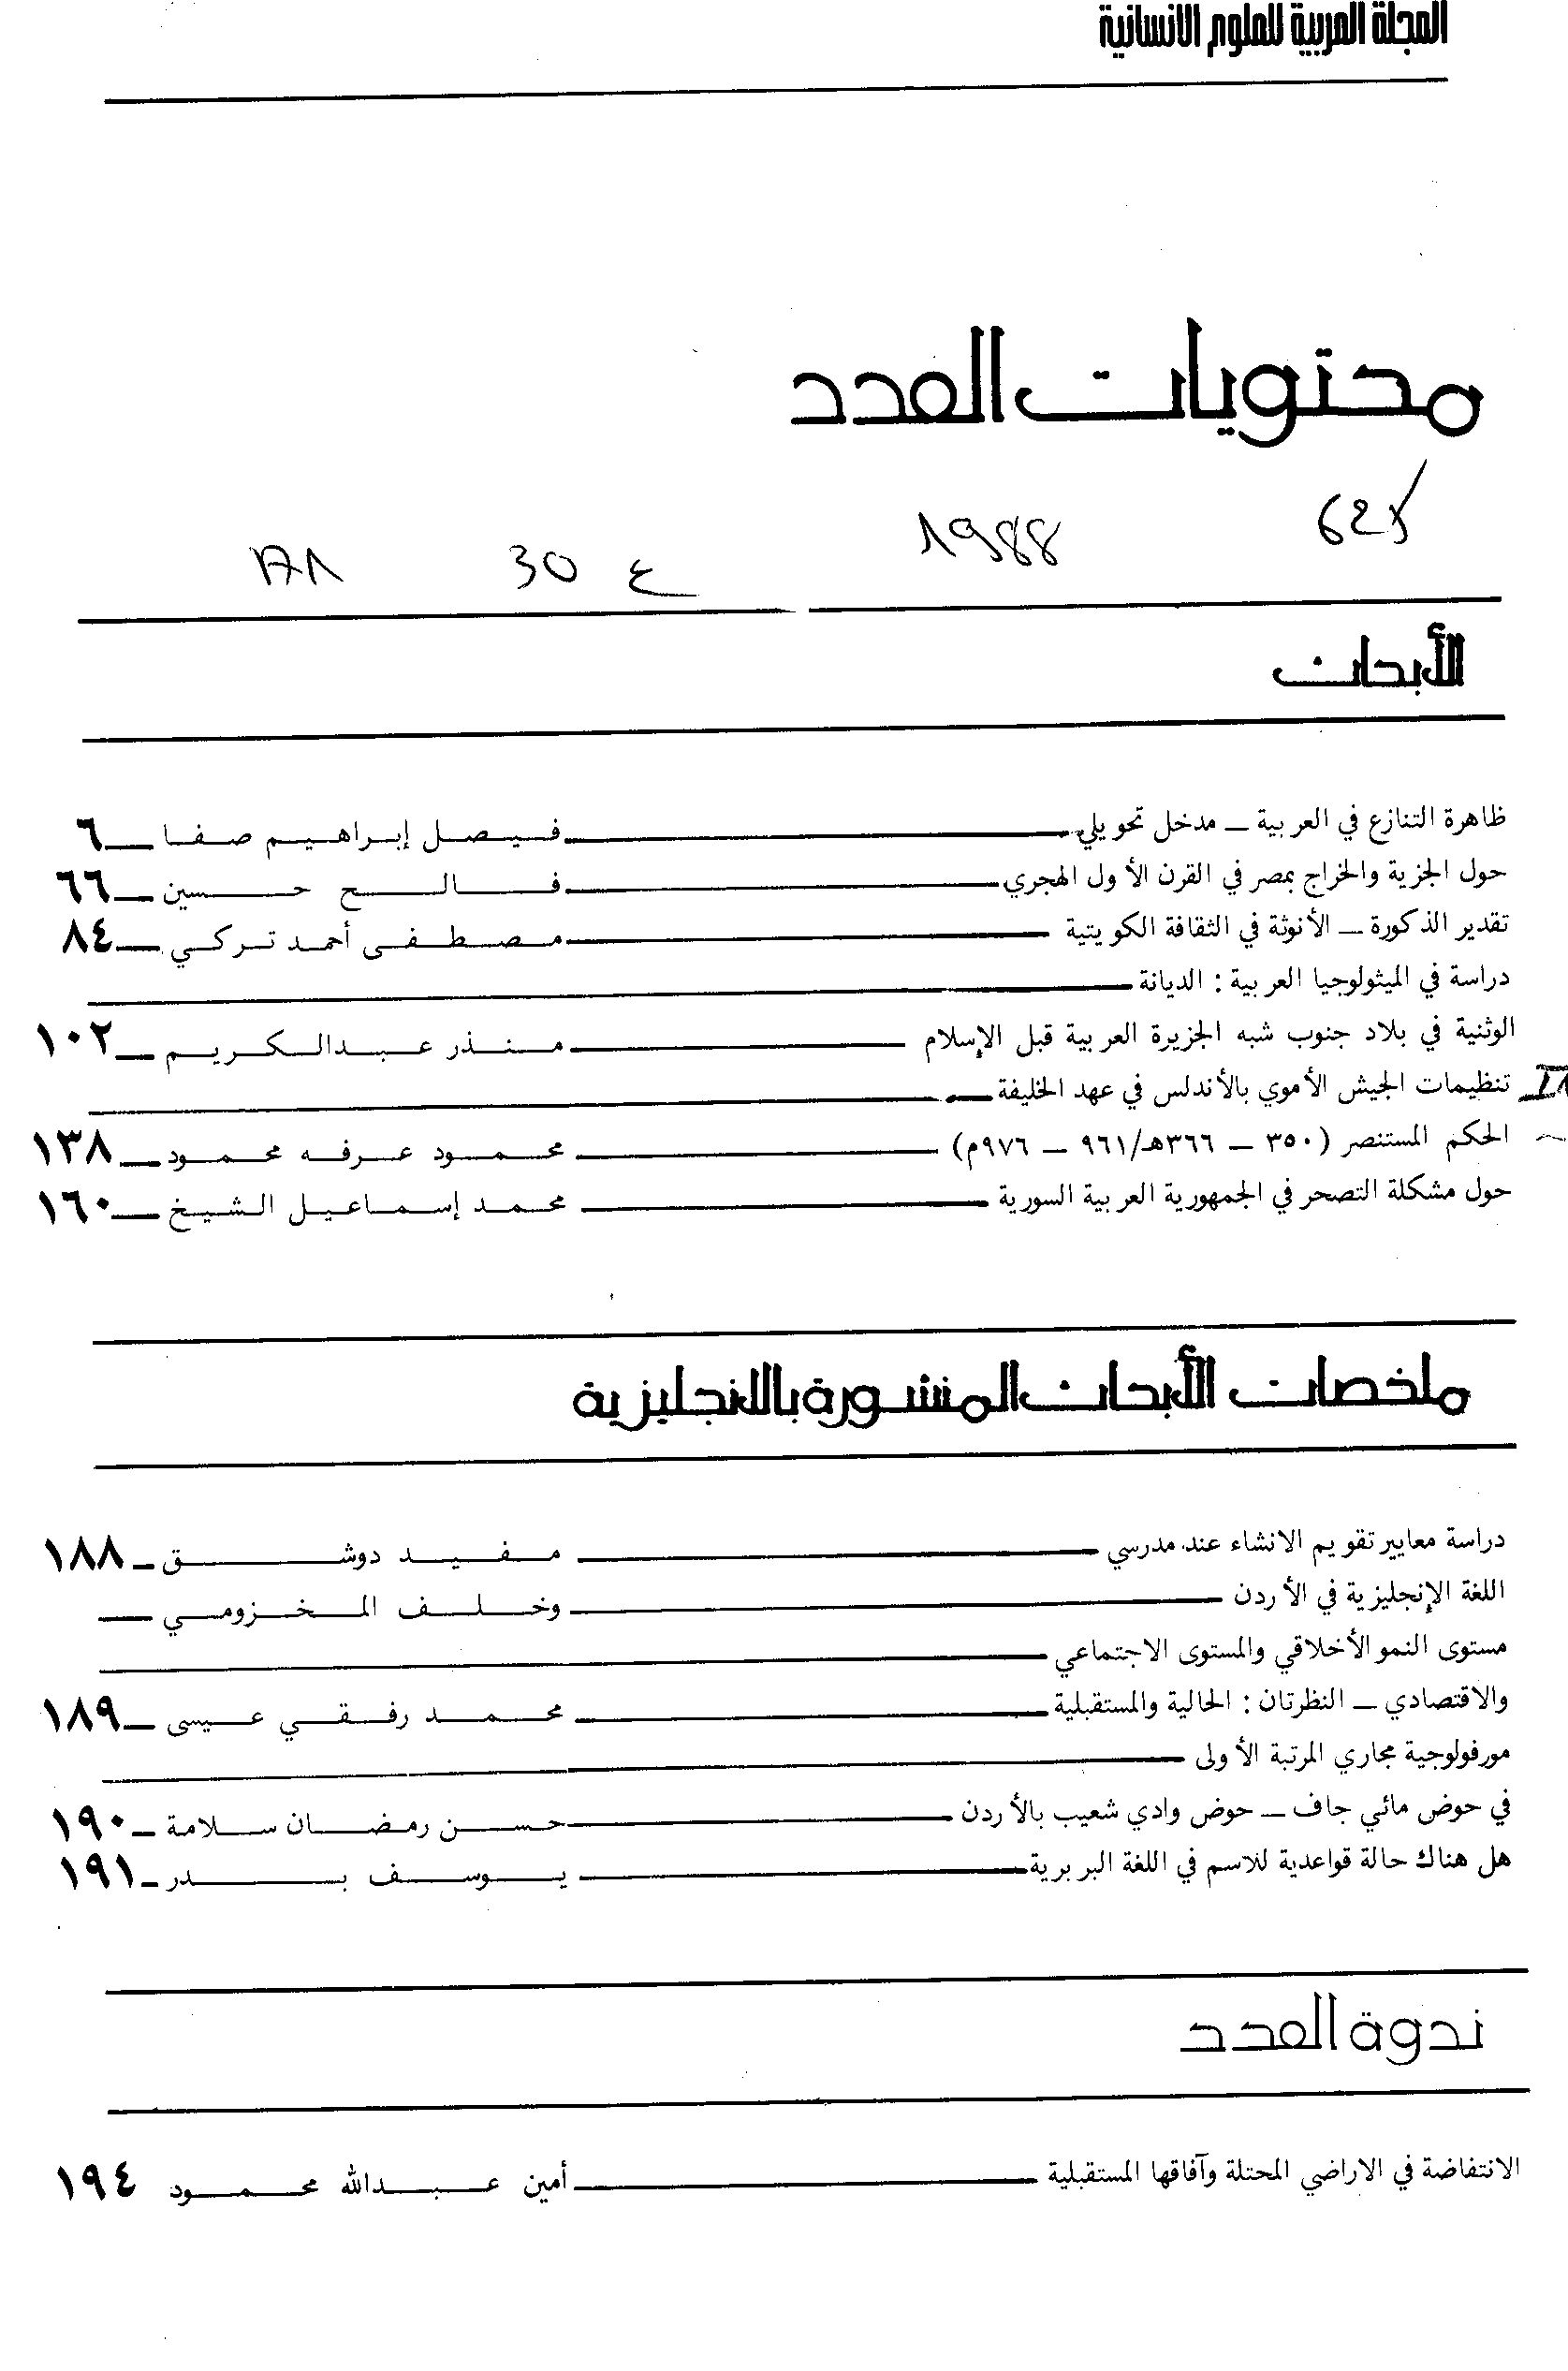 المجلة العربية للعلوم الانسانية
محتويات العدد
1988
ع 30
الأبحاث
ظاهرة التنازع في العربية ـ مدخل تحويلي فيصل إبراهيم صفا ٦
حول الجزية والخراج بمصر في القرن الأول الهجري فالح حسين ٦٦
تقدير الذكورة ـ الأنوثة في الثقافة الكويتية مصطفى أحمد تركي ٨٤
دراسة في الميثولوجيا العربية : الديانة
الوثنية في بلاد جنوب شبه الجزيرة العربية قبل الإسلام منذر عبدالكريم ١٠٢
تنظيمات الجيش الأموي بالأندلس في عهد الخليفة
الحكم المستنصر (٣٥٠ ـ ٣٦٦هـ/٩٦١ ـ ٩٧٦م) محمود عرفه محمود ١٣٨
حول مشكلة التصحر في الجمهورية العربية السورية محمد إسماعيل الشيخ ١٦٠
ملخصات الأبحاث المنشورة بالانجليزية
دراسة معايير تقويم الانشاء عند مدرسي مفيد دوشق ١٨٨
اللغة الإنجليزية في الأردن وخلف المخزومي
مستوى النمو الأخلاقي والمستوى الاجتماعي
والاقتصادي ـ النظرتان : الحالية والمستقبلية محمد رفقي عيسى ١٨٩
مورفولوجية مجاري المرتبة الأولى
في حوض مائي جاف ـ حوض وادي شعيب بالأردن حسن رمضان سلامة ١٩٠
هل هناك حالة قواعدية للاسم في اللغة البربرية يوسف بدر ١٩١
ندوة العدد
الانتفاضة في الاراضي المحتلة وآفاقها المستقبلية أمين عبدالله محمود ١٩٤